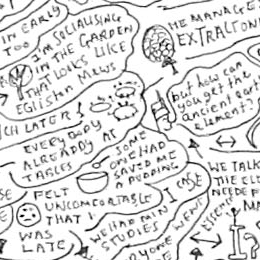 IN EARLY
TOO
I'M SOCIALISING
IN THE GARDEN
THAT LOOKS LIKE
ENGLISH MEWS
HE MANAGED
EXTRACTION
but how can
you get the
ancient earth
element?
CH LATER!
EVERYBODY
ALREADY AT
TABLES
SOME
ONE HAD
SAVED ME
A PUDDING
FELT
UNCOMFORTABLE
THAT I
WAS
LATE
WE HAD MINI
STUDIES
I CASE
WENT
WE TALK
THE ELE
NEED F
ESSENCE
MA